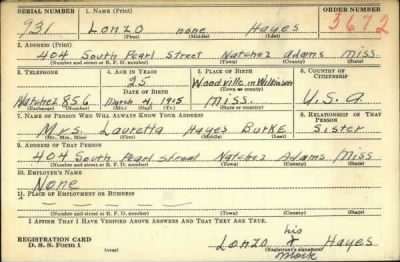 SERIAL NUMBER 1. NAME (Print) ORDER NUMBER
931 Lonzo none Hayes 3672
(First) (Middle) (Last)
2. ADDRESS (Print)
404 South Pearl Street Natchez Adams Miss.
(Number and street or R. F. D. number) (Town) (County) (State)
3. TELEPHONE 4. AGE IN YEARS 5. PLACE OF BIRTH 6. COUNTRY OF CITIZENSHIP
25 Woodville in Wilkinson
DATE OF BIRTH (Town or county)
Natchez 856 March 4, 1915 Miss. U.S.A
(Exchange) (Number) (Mo.) (Day) (Yr.) (State or country)
7. NAME OF PERSON WHO WILL ALWAYS KNOW YOUR ADDRESS 8. RELATIONSHIP OF THAT PERSON
Mrs. Lauretta Hayes Burke Sister
(Mr., Mrs., Miss) (First) (Middle) (Last)
9. ADDRESS OF THAT PERSON
404 South Pearl Street Natchez Adams Miss
(Number and street or R. F. D. number) (Town) (County) (State)
10. EMPLOYER'S NAME
None
11. PLACE OF EMPLOYMENT OR BUSINESS
(Number and street or R. F. D. number) (Town) (County) (State)
I AFFIRM THAT I HAVE VERIFIED ABOVE ANSWERS AND THAT THEY ARE TRUE.
his
REGISTRATION CARD Lonzo X Hayes
D. S. S. Form 1 (Registrant's signature)
mark